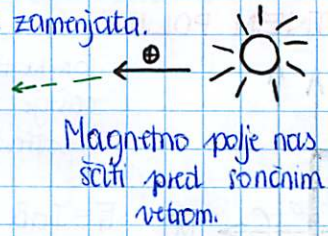 zamenjata.
⊕
Magnetno polje nas
ščiti pred sončnim
vetrom.